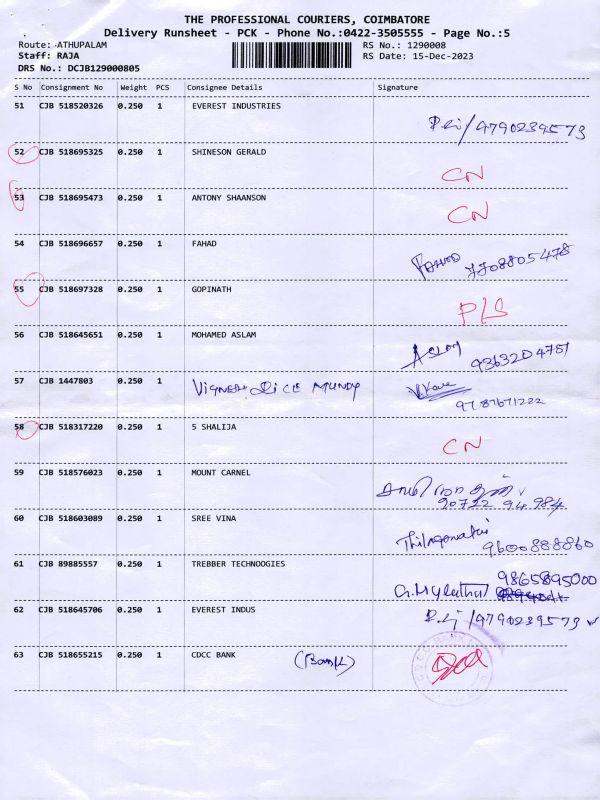 THE PROFESSIONAL COURIERS, COIMBATORE
Delivery Runsheet - PCK - Phone No.:0422-3505555 - Page No.:5
Route: ATHUPALAM RS No.: 1290008
Staff: RAJA RS Date: 15-Dec-2023
DRS No.: DCJB129000805
S No Consignment No Weight PCS Consignee Details Signature
51 CJB 518520326 0.250 1 EVEREST INDUSTRIES
9790239573
52 CJB 518695325 0.250 1 SHINESON GERALD
CN
53 CJB 518695473 0.250 1 ANTONY SHAANSON
CN
54 CJB 518696657 0.250 1 FAHAD
FAHAD 7708805478
55 CJB 518697328 0.250 1 GOPINATH
PLS
56 CJB 518645651 0.250 1 MOHAMED ASLAM
Aslam 9363204751
57 CJB 1447803 0.250 1 VIGNESH RICE MUNDY
9787671222
58 CJB 518317220 0.250 1 S SHALIJA
CN
59 CJB 518576023 0.250 1 MOUNT CARNEL
90722 94984
60 CJB 518603089 0.250 1 SREE VINA
Thilagavathi 9600888860
61 CJB 89885557 0.250 1 TREBBER TECHNOOGIES
9865895000
62 CJB 518645706 0.250 1 EVEREST INDUS
9790239573
63 CJB 518655215 0.250 1 CDCC BANK (Bank)